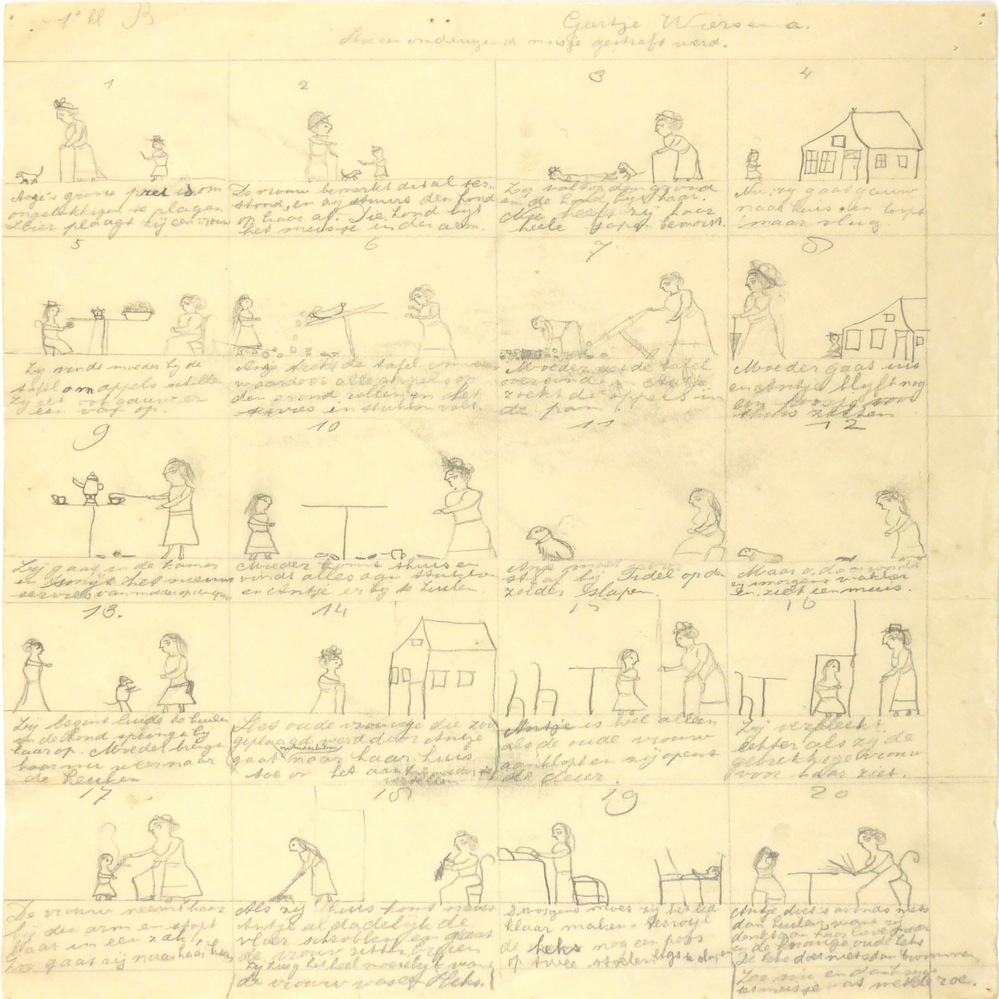 1e kl B
Gartje Wiersema.
Hoe een ondeugend meisje gestraft werd.
1
Antje's groote pret is om
ongelukkigen te plagen
Hier plaagt zij een vrouw
2
De vrouw bemerkt dit al ter-
stond, en zij stuurt den hond
op haar af. Die hond bijt
het meisje in den arm.
3
Zij valt op den grond
en de hond bijt haar.
Nu heeft zij haar
heele bemorst.
4
Nu, zij gaat gauw
naar huis en loopt
maar vlug
5
Zij vindt moeder bij de
tafel om appels schillen
Zij eet ook gauw er
een van op.
6
Antje trekt de tafel omver
waardoor alle appels op
den grond rollen en het
servies in stukken valt.
7
Moeder zet de tafel
overeind en Antje
zoekt de appels in
de pan.
8
Moeder gaat uit
en Antje blijft nog
een poosje voor
thuis zitten
9
Zij gaat in de kamer
en het nieuwe
servies van moeder
10
Moeder komt thuis en
vindt alles aan stukken
en Antje er bij te huilen
11
Antje moet
straf bij Fidel op den
zolder slapen.
12
Maar o, daar wordt
zij smorgens wakker
en ziet een muis.
13.
Zij begint luide te huilen
en de hond springt bij
haar op. Moeder brengt
haar nu weer naar
de keuken
14
Het oude vrouwtje die zoo
geplaagd werd door Antje
gaat naar haar huis
toe om het aan moeder te
vertellen
15
Antje is heel alleen
als de oude vrouw
aanklopt en zij opent
de deur.
16
Zij verbleekt
echter als zij de
gebrekkige vrouw
voor haar ziet.
17
De vrouw neemt haar
bij den arm en stopt
haar in een zak.
Zoo gaat zij naar haar huis
18
Als zij thuis komt moet
Antje al dadelijk de
vloer schrobben en gaat
de vrouw zitten
Zij kreeg het heel moeilijk van
de vrouw was een Heks.
19
Smorgens moet zij het bed
klaar maken. Terwijl
de heks nog een poos
op twee stoelen ligt te slapen
20
Antje doet s avonds niets
dan huilen, want zij
denkt aan haar lieve moeder
en de oude heks
De heks doet niets dan brommen
Zoo nu en dan
het meisje wat met de roe.